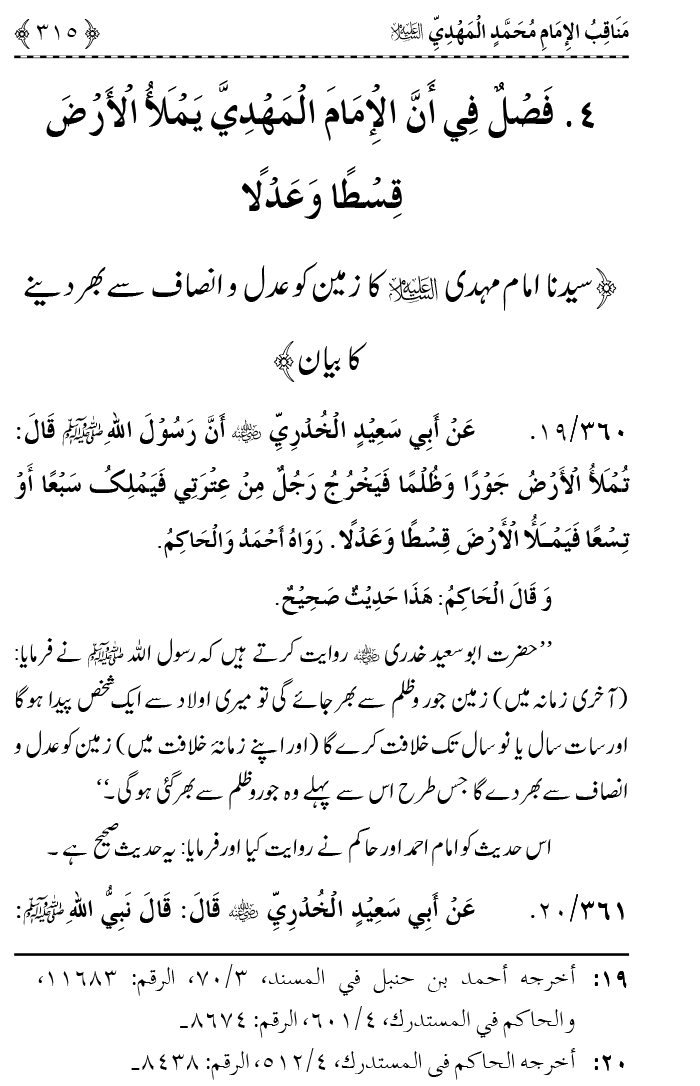 مَنَاقِبُ الإِمَامِ مُحَمَّدٍ الْمَهْدِيِّ عليه السلام ﴿ ٣١٥ ﴾
٤. فَصْلٌ فِي أَنَّ الْإِمَامَ الْمَهْدِيَّ يَمْلَأُ الْأَرْضَ
قِسْطًا وَعَدْلًا
﴿سیدنا امام مہدی علیہ السلام کا زمین کو عدل و انصاف سے بھر دینے
کا بیان﴾
١٩/٣٦٠. عَنْ أَبِي سَعِيْدٍ الْخُدْرِيِّ رضي الله عنه أَنَّ رَسُوْلَ اللهِ ﷺ قَالَ:
تُمْلَأُ الْأَرْضُ جَوْرًا وَظُلْمًا فَيَخْرُجُ رَجُلٌ مِنْ عِتْرَتِي فَيَمْلِكُ سَبْعًا أَوْ
تِسْعًا فَيَمْلَأُ الْأَرْضَ قِسْطًا وَعَدْلًا. رَوَاهُ أَحْمَدُ وَالْحَاكِمُ.
وَ قَالَ الْحَاكِمُ: هَذَا حَدِيْثٌ صَحِيْحٌ.
’’حضرت ابو سعید خدری رضی اللہ عنہ روایت کرتے ہیں کہ رسول اللہ ﷺ نے فرمایا:
(آخری زمانہ میں) زمین جور و ظلم سے بھر جائے گی تو میری اولاد سے ایک شخص پیدا ہو گا
اور سات سال یا نو سال تک خلافت کرے گا (اور اپنے زمانۂ خلافت میں) زمین کو عدل و
انصاف سے بھر دے گا جس طرح اس سے پہلے وہ جور و ظلم سے بھر گئی ہو گی۔‘‘
اس حدیث کو امام احمد اور حاکم نے روایت کیا اور فرمایا: یہ حدیث صحیح ہے ۔
٢٠/٣٦١. عَنْ أَبِي سَعِيْدٍ الْخُدْرِيِّ رضي الله عنه قَالَ: قَالَ نَبِيُّ اللهِ ﷺ:
١٩: أخرجه أحمد بن حنبل في المسند، ٧٠/٣، الرقم: ١١٦٨٣،
والحاكم في المستدرك، ٦٠١/٤، الرقم: ٨٦٧٤ـ
٢٠: أخرجه الحاكم في المستدرك، ٥١٢/٤، الرقم: ٨٤٣٨ـ